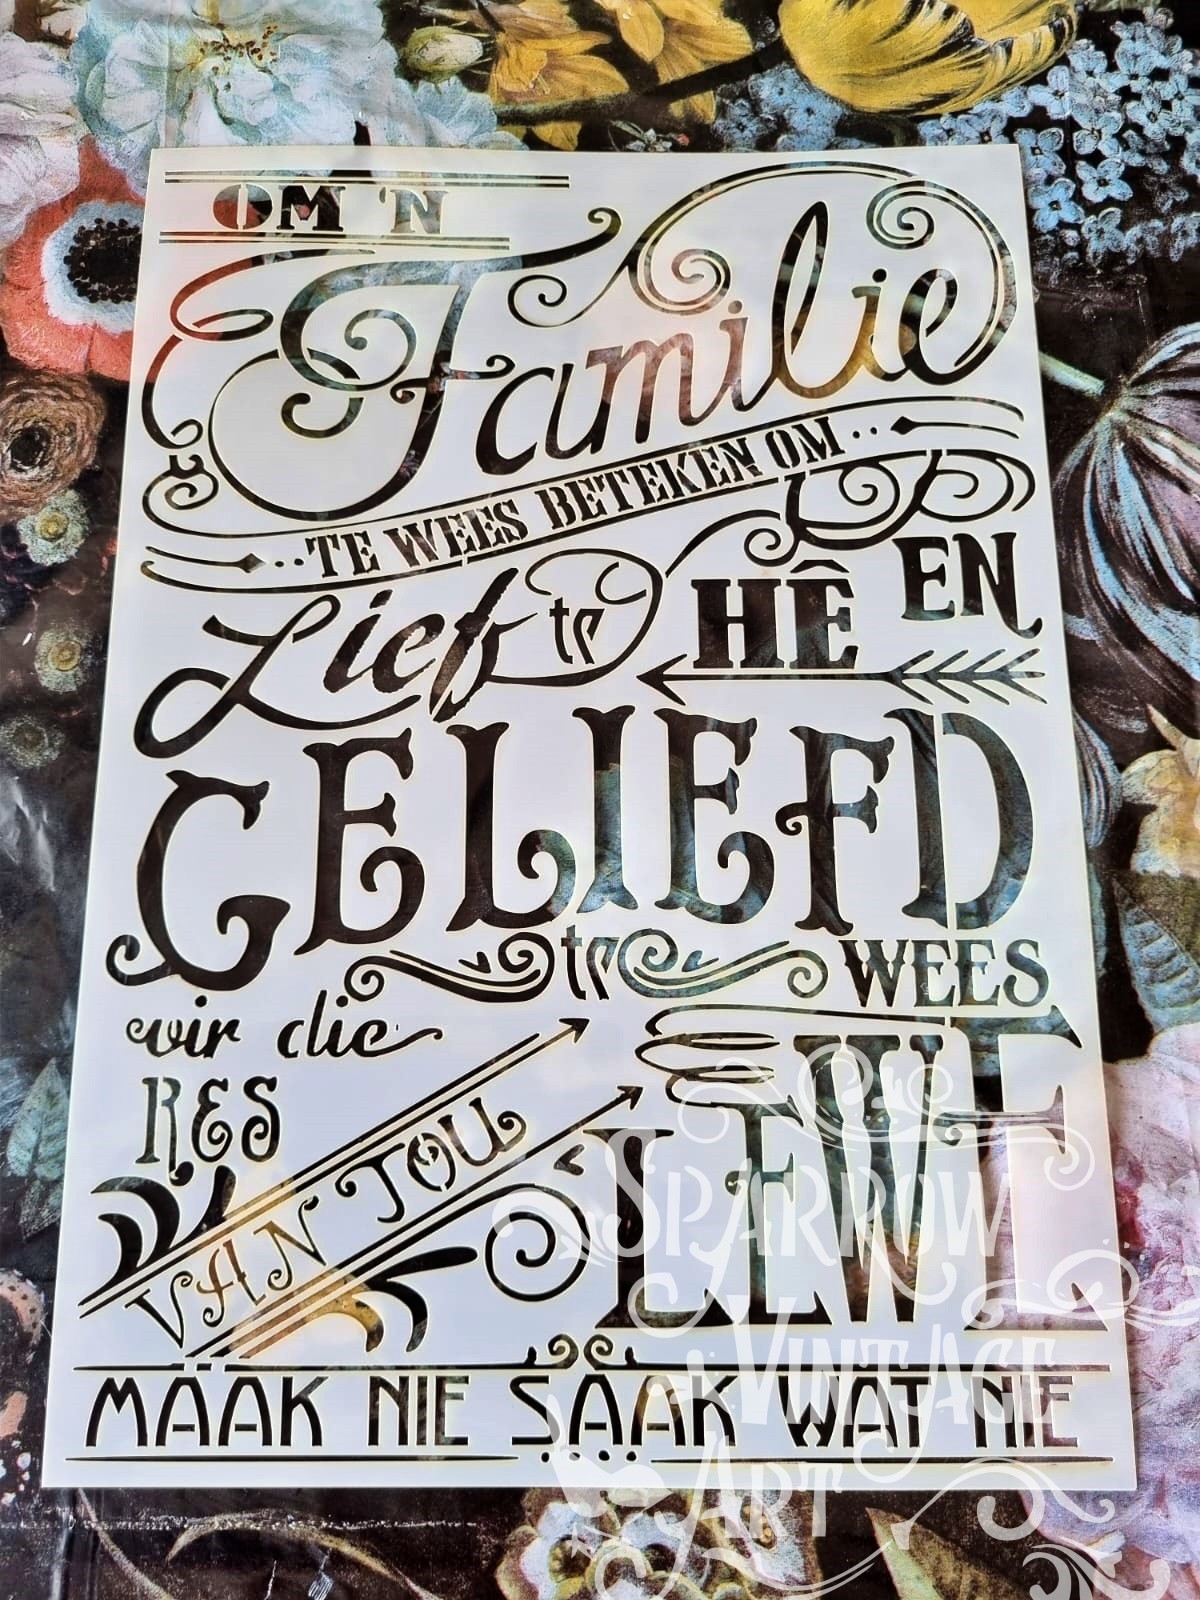 OM 'N
Familie
TE WEES BETEKEN OM
Lief te HÊ EN
GELIEFD
te WEES
vir die
RES
VAN JOU
LEWE
MAAK NIE SAAK WAT NIE
SPARROW
VINTAGE
ART